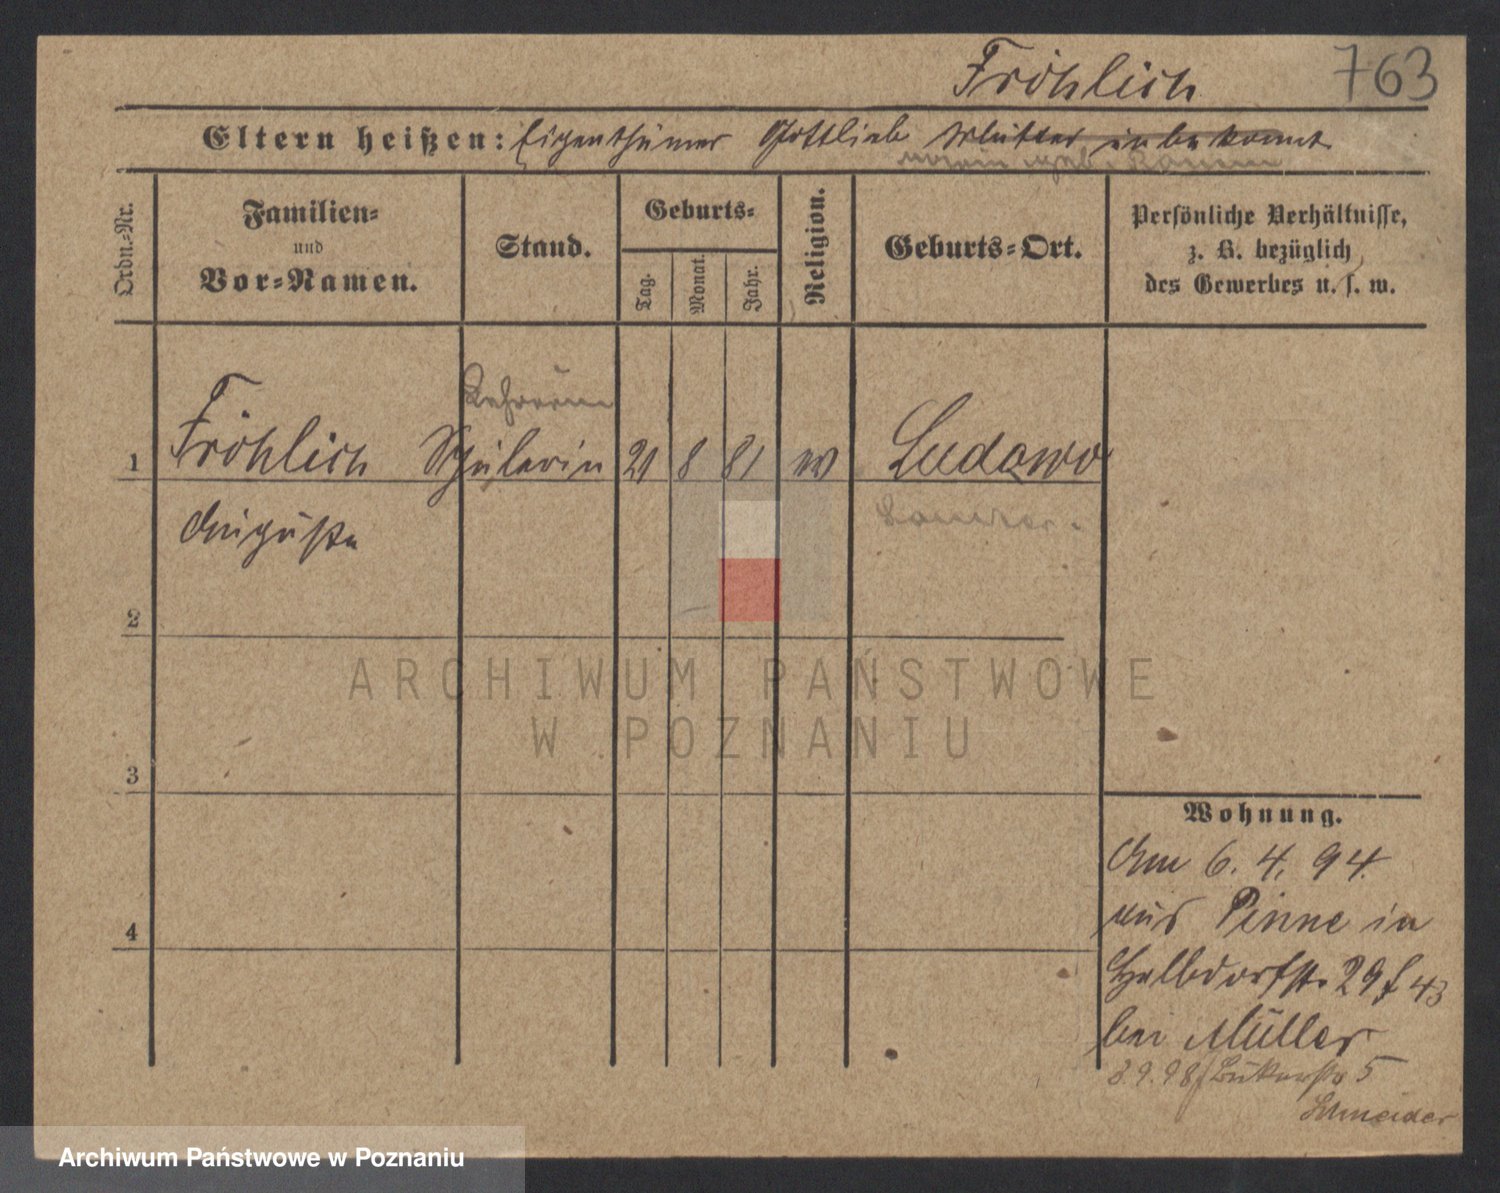 Fröhlich 763
Eltern heißen: Eigenthümer Gottlieb Mutter unbekannt
geb.
Ordn.-Nr.
Familien-
und
Vor-Namen.
Stand.
Geburts-
Tag.
Monat.
Jahr.
Religion.
Geburts-Ort.
Persönliche Verhältnisse,
z. B. bezüglich
des Gewerbes u. s. w.
Lehrerin
1 Fröhlich Schülerin 21 8 81 Ludowo
Auguste
2
3
4
Wohnung.
Am 6. 4. 94.
aus Pinne in
Halbdorfstr. 29 43
bei Müller
3 9. 98 5
Schneider
ARCHIWUM PAŃSTWOWE
W POZNANIU
Archiwum Państwowe w Poznaniu